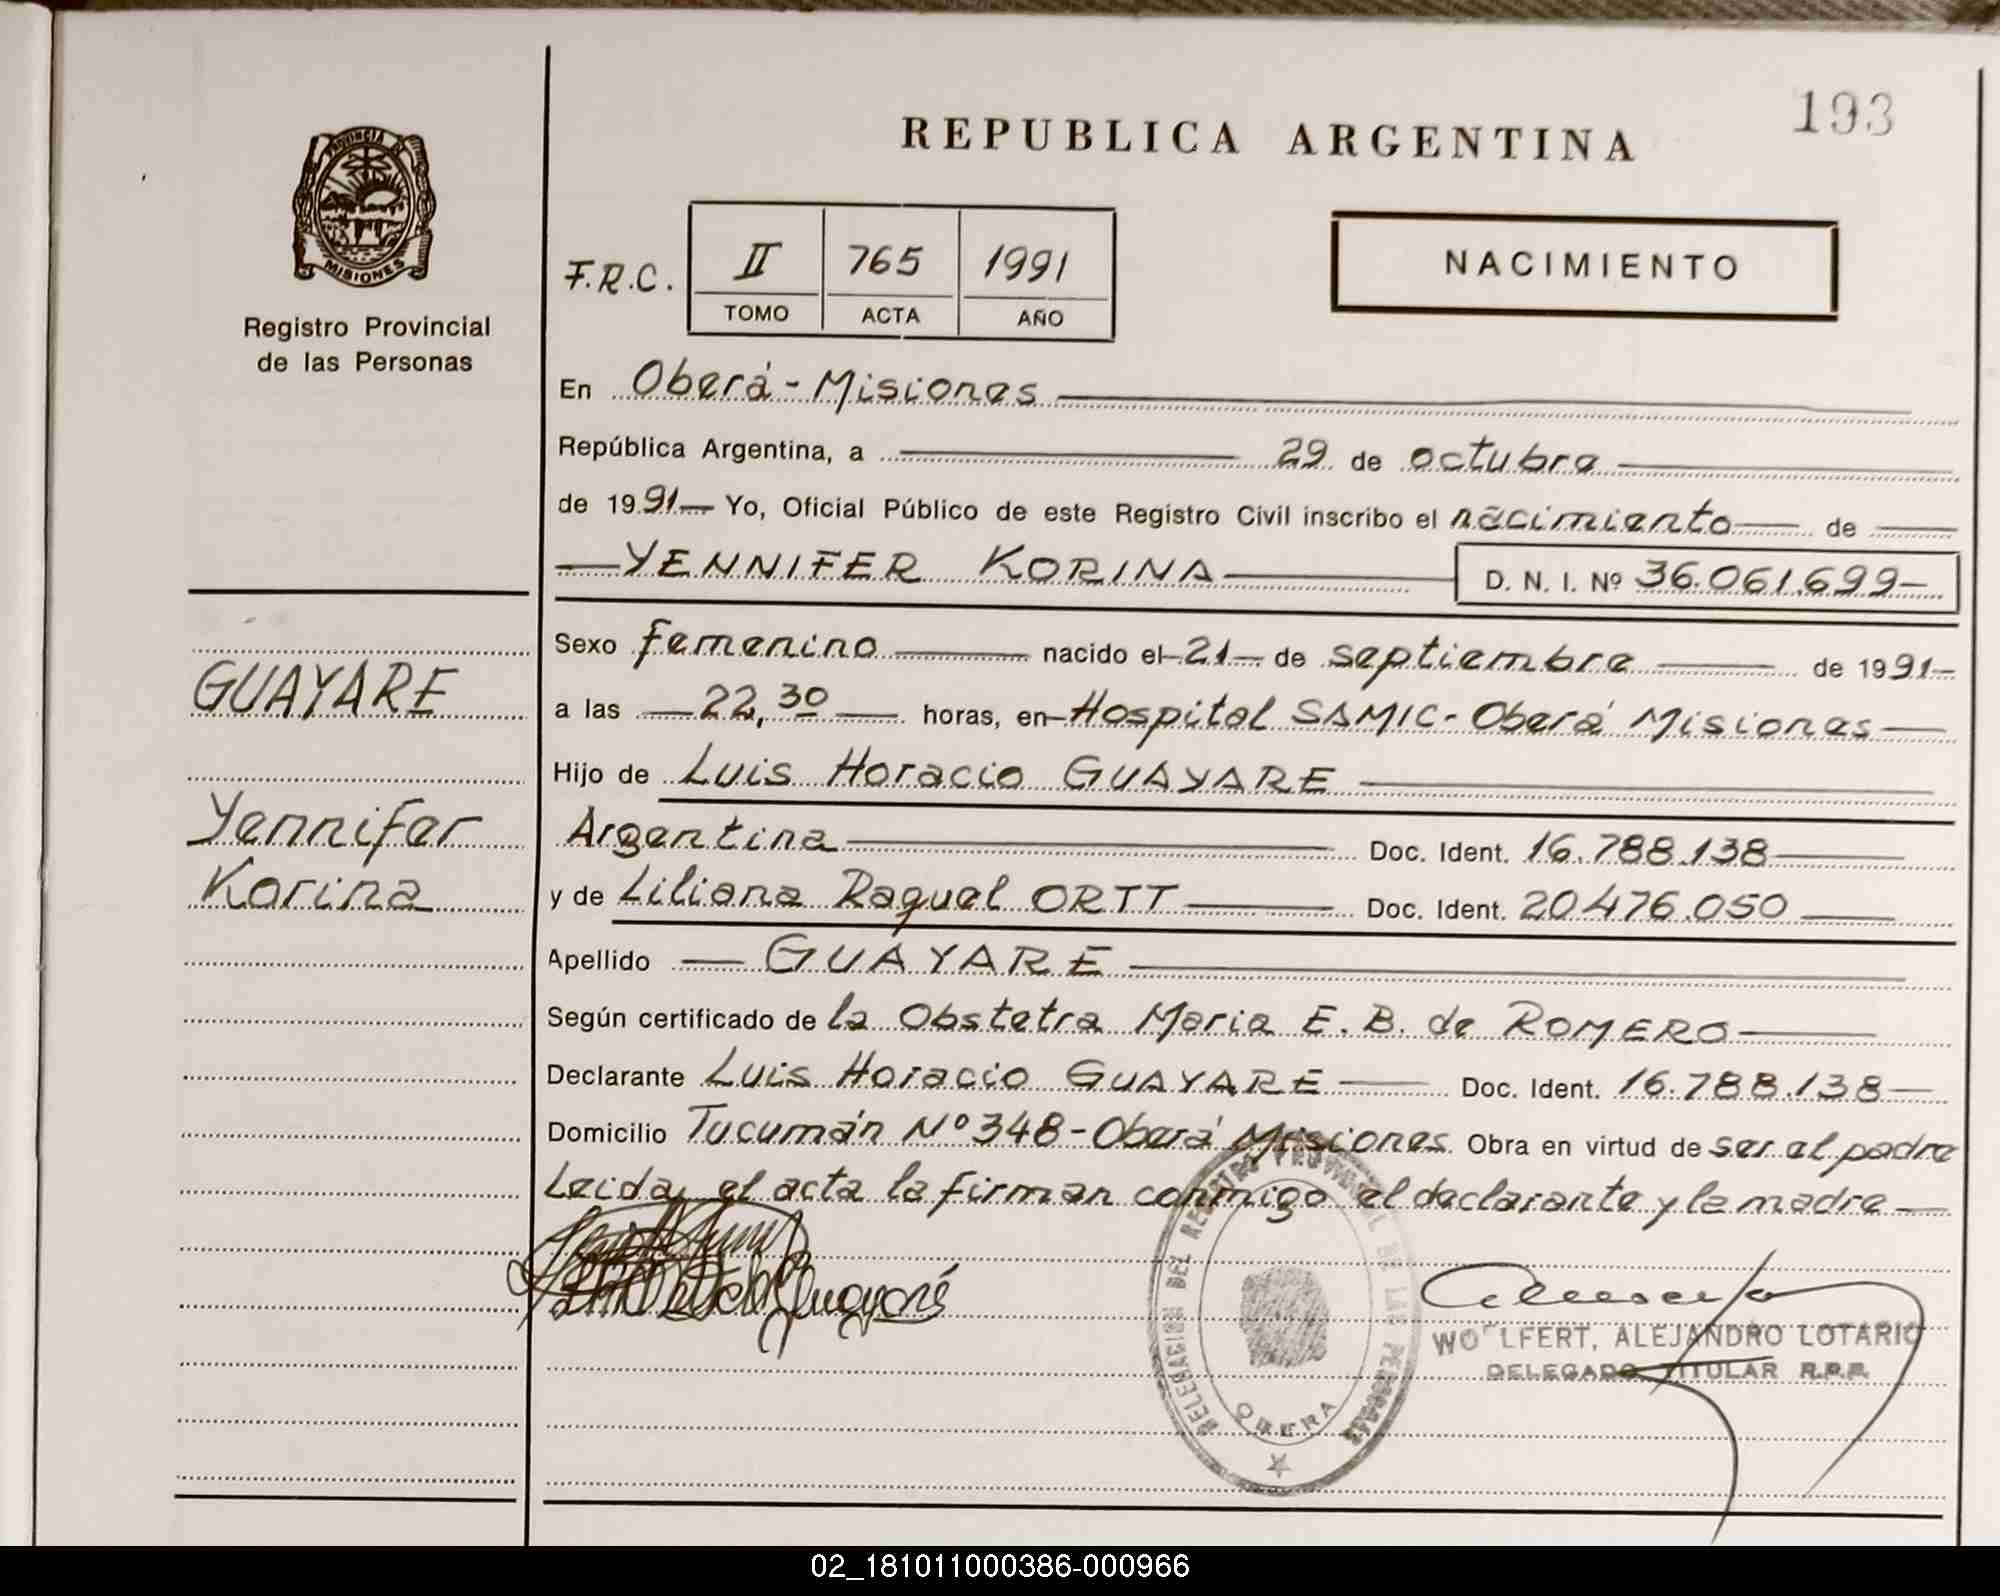 193
REPUBLICA ARGENTINA
PROVINCIA DE
MISIONES
Registro Provincial
de las Personas
F.R.C. II 765 1991
TOMO ACTA AÑO
NACIMIENTO
En Oberá - Misiones
República Argentina, a 29 de octubre
de 1991 Yo, Oficial Público de este Registro Civil inscribo el nacimiento de
YENNIFER KORINA D. N. I. Nº 36.061.699
GUAYARE
Yennifer
Korina
Sexo femenino nacido el 21 de septiembre de 1991
a las 22,30 horas, en Hospital SAMIC - Oberá Misiones
Hijo de Luis Horacio GUAYARE
Argentina Doc. Ident. 16.788.138
y de Liliana Raquel ORTT Doc. Ident. 20476.050
Apellido GUAYARE
Según certificado de la Obstetra Maria E. B. de ROMERO
Declarante Luis Horacio GUAYARE Doc. Ident. 16.788.138
Domicilio Tucumán Nº 348 - Oberá Misiones Obra en virtud de ser el padre
Leida el acta la firman conmigo el declarante y la madre
DELEGACION DEL REGISTRO PROVINCIAL DE LAS PERSONAS
OBERA
WOLFERT, ALEJANDRO LOTARIO
DELEGADO TITULAR R.P.P.
02_181011000386-000966